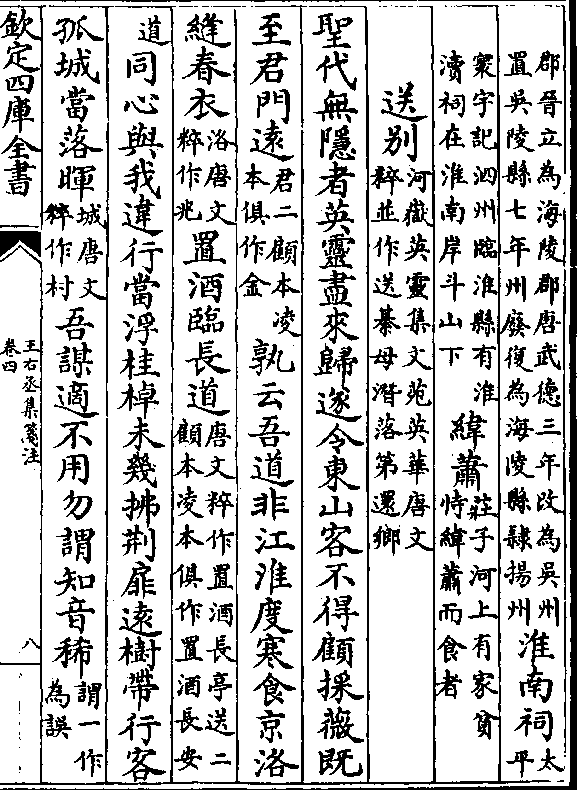 郡晉立為海陵郡唐武德三年改為吳州置吳陵縣七年州廢復為海陵縣隸揚州淮南祠太平
寰宇記泗州臨淮縣有淮瀆祠在淮南岸斗山下緯蕭莊子河上有家貧恃緯蕭而食者
送別河嶽英靈集文苑英華唐文粹並作送綦母潛落第還鄉
聖代無隱者英靈盡來歸遂令東山客不得顧採薇既
至君門遠君二顧本凌本俱作金孰云吾道非江淮度寒食京洛
縫春衣洛唐文粹作兆置酒臨長道唐文粹作置酒長亭送二顧本凌本俱作置酒長安
道同心與我違行當浮桂棹未幾拂荊扉遠樹帶行客
孤城當落暉城唐文粹作村吾謀適不用勿謂知音稀謂一作為誤
欽定四庫全書
王右丞集箋注
卷四
八